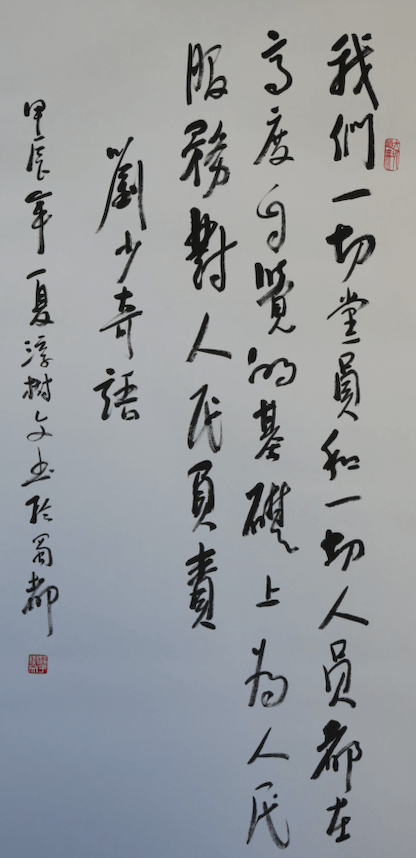 我們一切党員和一切人员都在
高度自覺的基礎上为人民
服務對人民負責
劉少奇語
甲辰年夏淳樹文书於蜀都